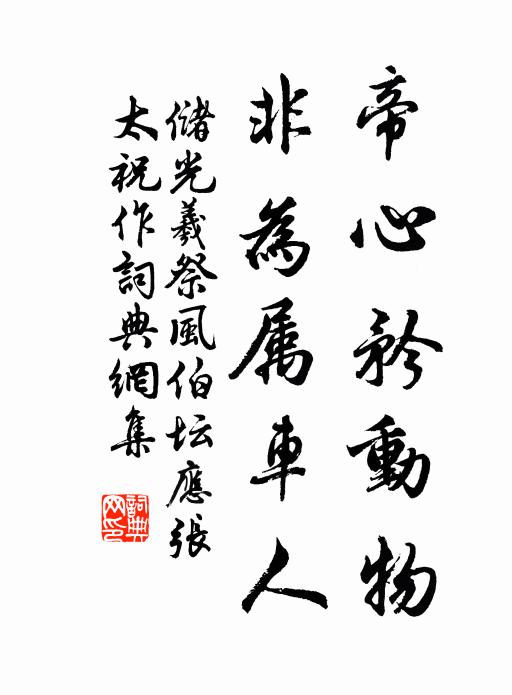 帝心矜動物
非為属車人
儲光羲祭風伯坛應張
太祝作詞典網集
詞典
网印